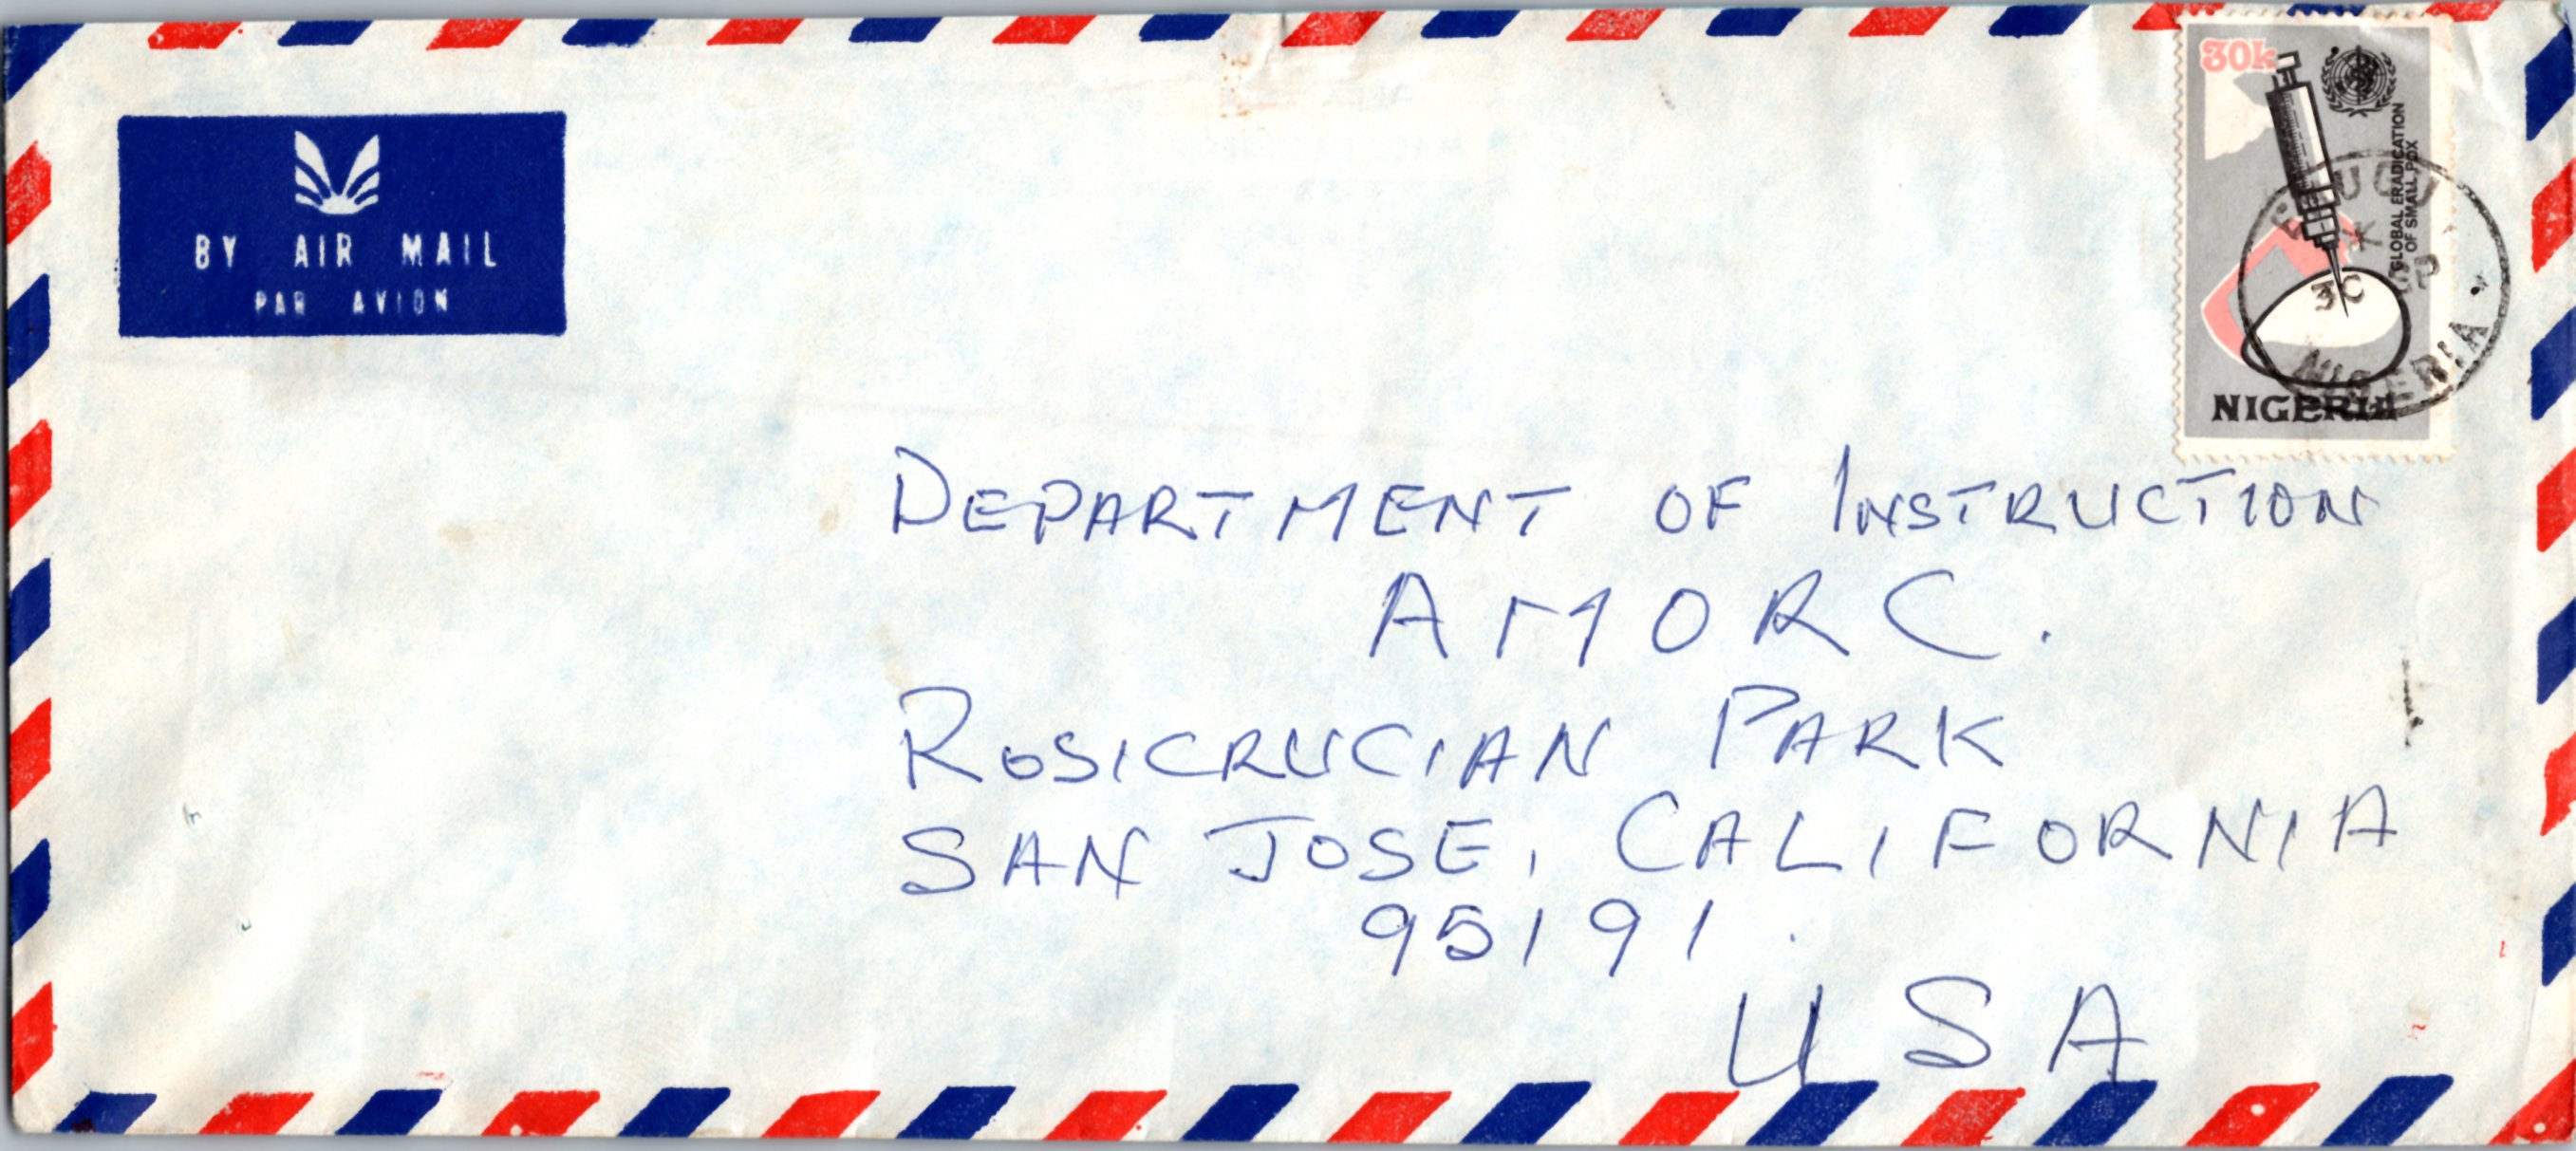 BY AIR MAIL
PAR AVION
30k
GLOBAL ERADICATION
OF SMALL POX
NIGERIA
NIGERIA
DEPARTMENT OF INSTRUCTION
AMORC.
ROSICRUCIAN PARK
SAN JOSE, CALIFORNIA
95191.
USA